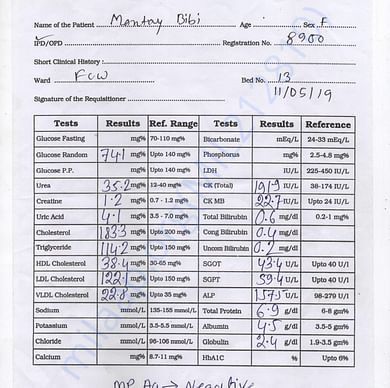 Name of the Patient Mantay Bibi Age Sex F
IPD/OPD Registration No. 8900
Short Clinical History :
Ward FCW Bed No. 13
11/05/19
Signature of the Requisitioner
Tests Results Ref. Range Tests Results Reference
Glucose Fasting mg% 70-110 mg% Bicarbonate mEq/L 24-33 mEq/L
Glucose Random 741 mg% Upto 140 mg% Phosphorus mg% 2.5-4.8 mg%
Glucose P.P. mg% Upto 140 mg% LDH IU/L 225-450 IU/L
Urea 35.2 mg% 12-40 mg% CK (Total) 191.9 IU/L 38-174 IU/L
Creatine 1.2 mg% 0.7 - 1.2 mg% CK MB 22.7 IU/L Upto 24 IU/L
Uric Acid 4.1 mg% 3.5 - 7.0 mg% Total Bilirubin 0.6 mg/dl 0.2-1 mg%
Cholesterol 183.3 mg% Upto 200 mg% Cong Bilirubin 0.4 mg/dl
Triglyceride 114.2 mg% Upto 150 mg% Uncon Bilirubin 0.2 mg/dl
HDL Cholesterol 38.4 mg% 30-65 mg% SGOT 43.4 U/L Upto 40 U/l
LDL Cholesterol 122.1 mg% Upto 150 mg% SGPT 39.4 U/L Upto 40 U/L
VLDL Cholesterol 22.8 mg% Upto 35 mg% ALP 157.5 U/L 98-279 U/l
Sodium mmol/L 135-155 mmol/L Total Protein 6.9 g/dl 6-8 gm%
Potassium mmol/L 3.5-5.5 mmol/L Albumin 4.5 g/dl 3.5-5 gm%
Chloride mmol/L 96-106 mmol/L Globulin 2.4 g/dl 1.9-3.5 gm%
Calcium mg% 8.7-11 mg% HbA1C % Upto 6%
MP Ag → Negative